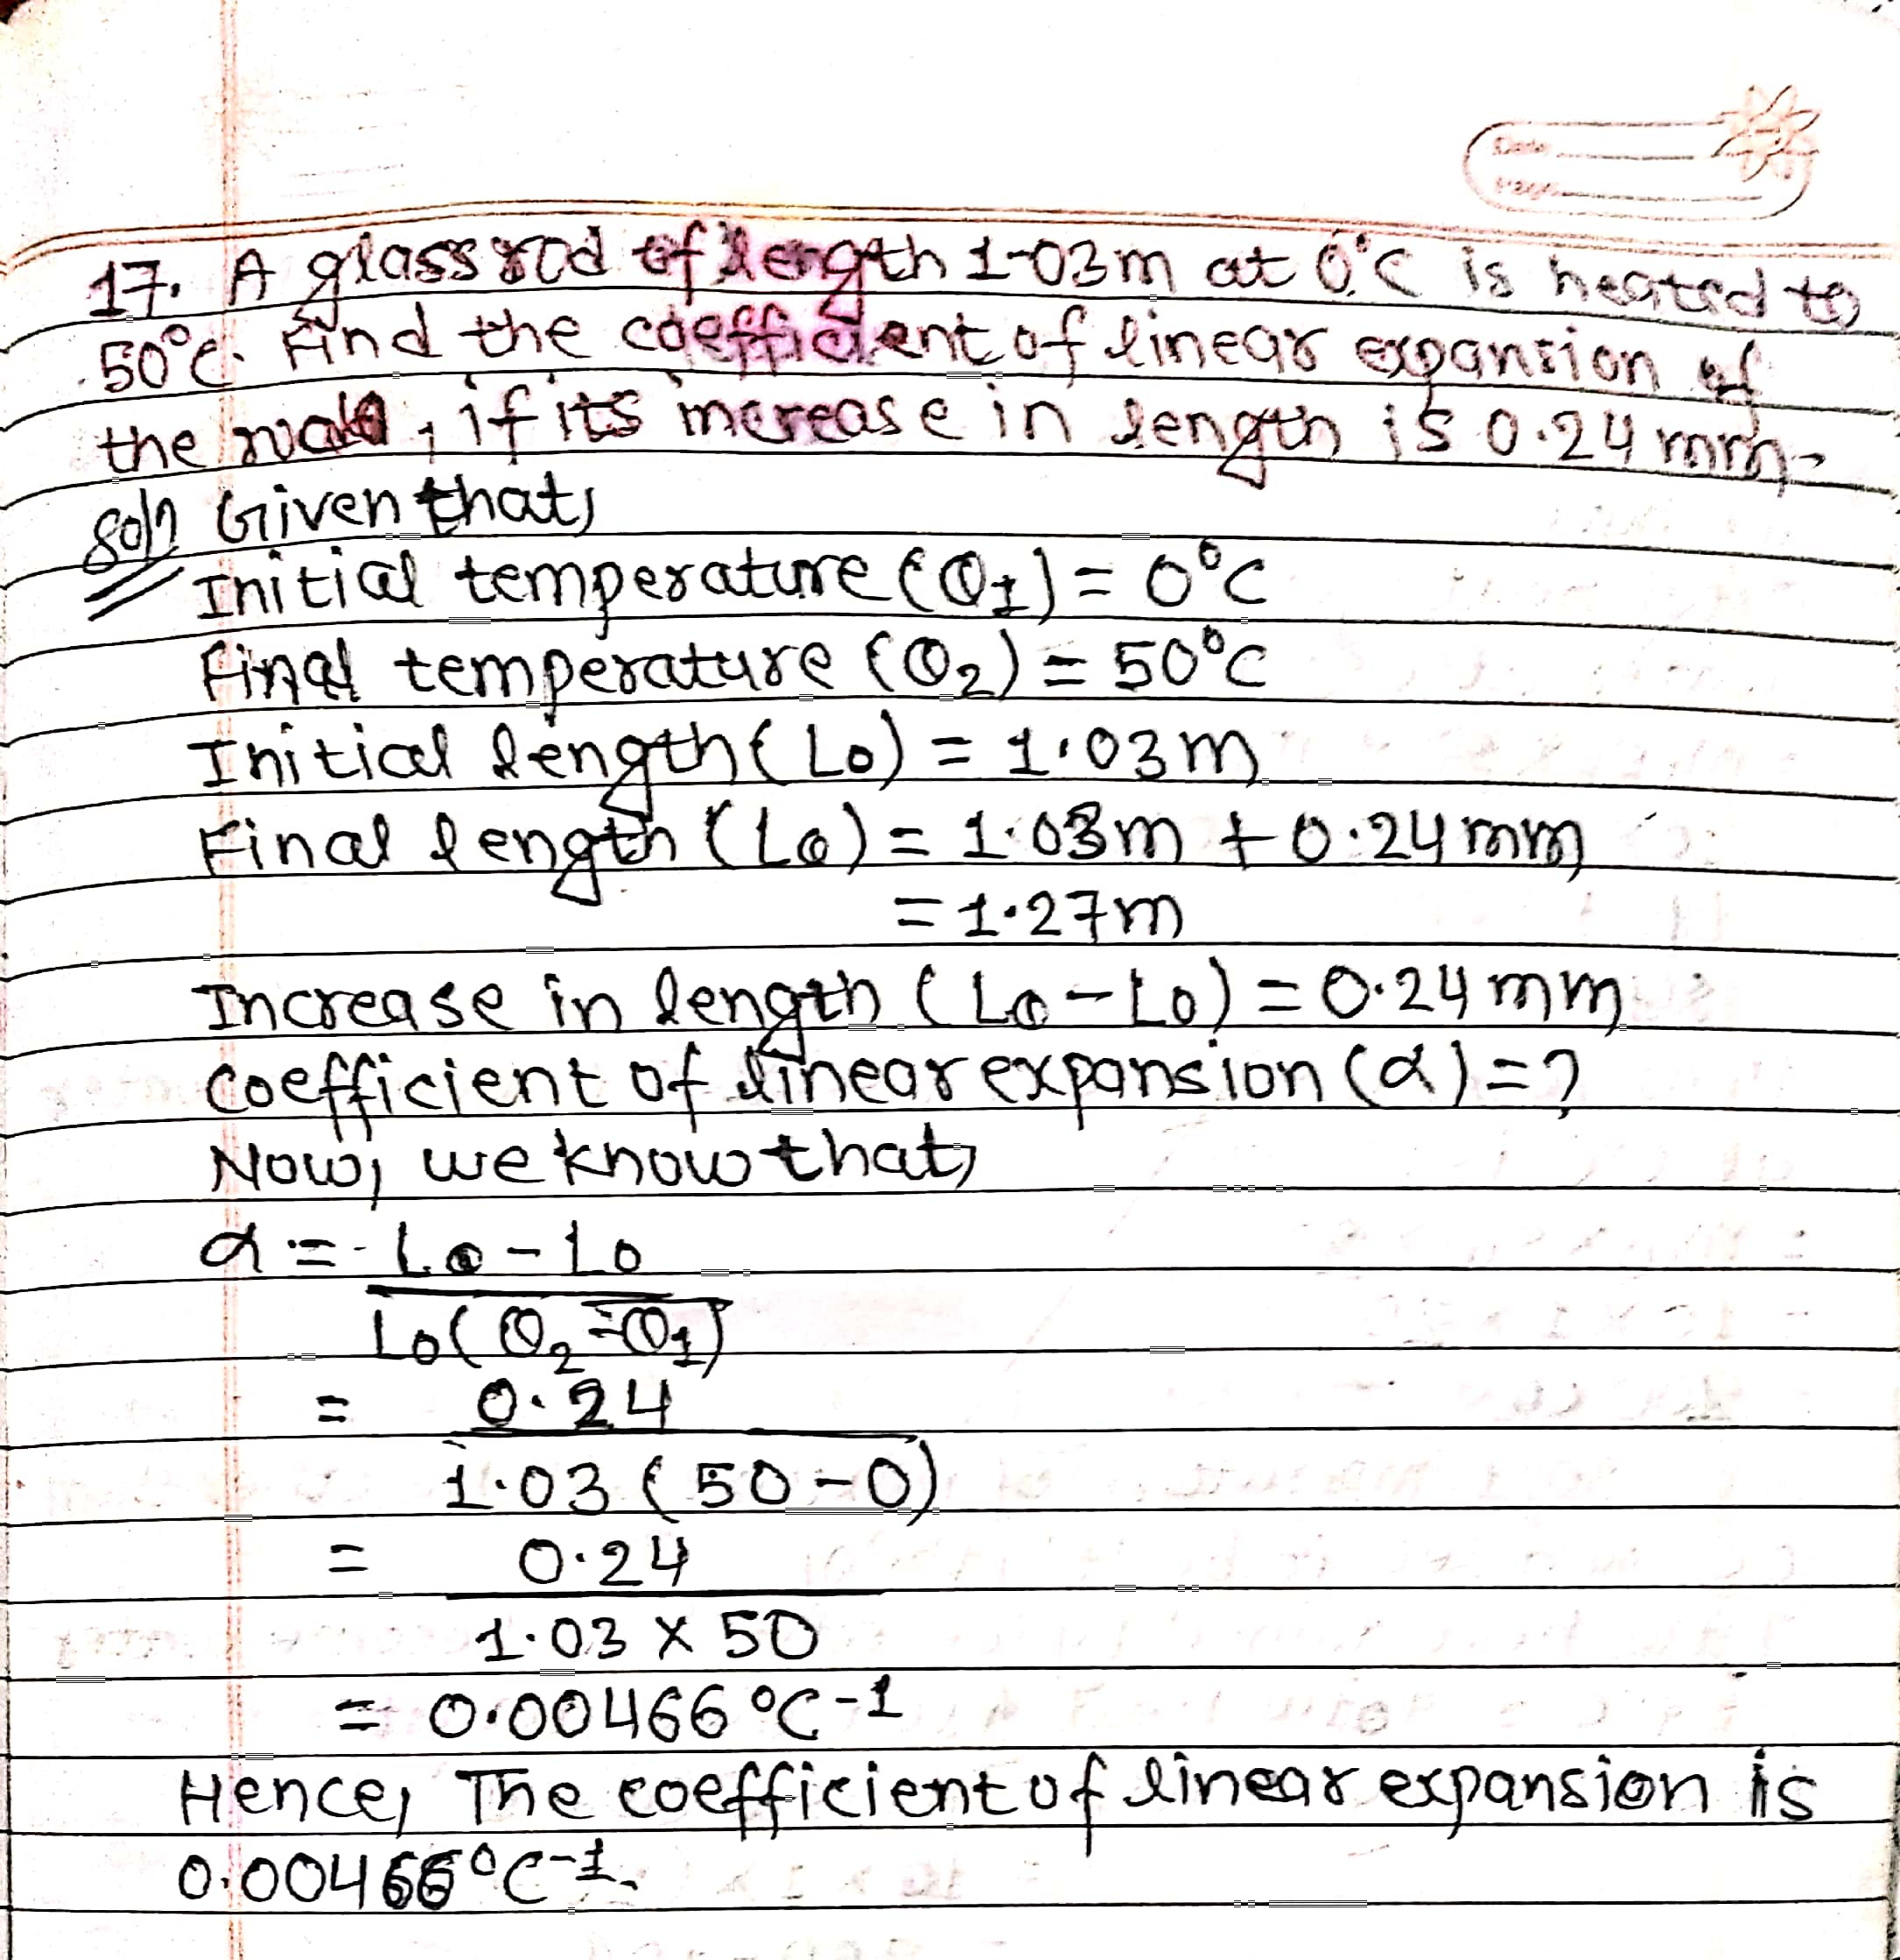 17. A glass rod of length 1.03m at 0°C is heated to
50°C. Find the coefficient of linear expansion of
the , if its increase in length is 0.24 mm.
Soln Given that,
Initial temperature (θ1) = 0°C
Final temperature (θ2) = 50°C
Initial length (Lo) = 1.03m
Final length (Lθ) = 1.03m + 0.24mm
= 1.27m
Increase in length (Lθ - Lo) = 0.24 mm
Coefficient of linear expansion (α) = ?
Now, we know that,
α = Lθ - Lo
Lo(θ2-θ1)
= 0.24
1.03 (50-0)
= 0.24
1.03 x 50
= 0.00466 °C-1
Hence, The coefficient of linear expansion is
0.00466°C-1.